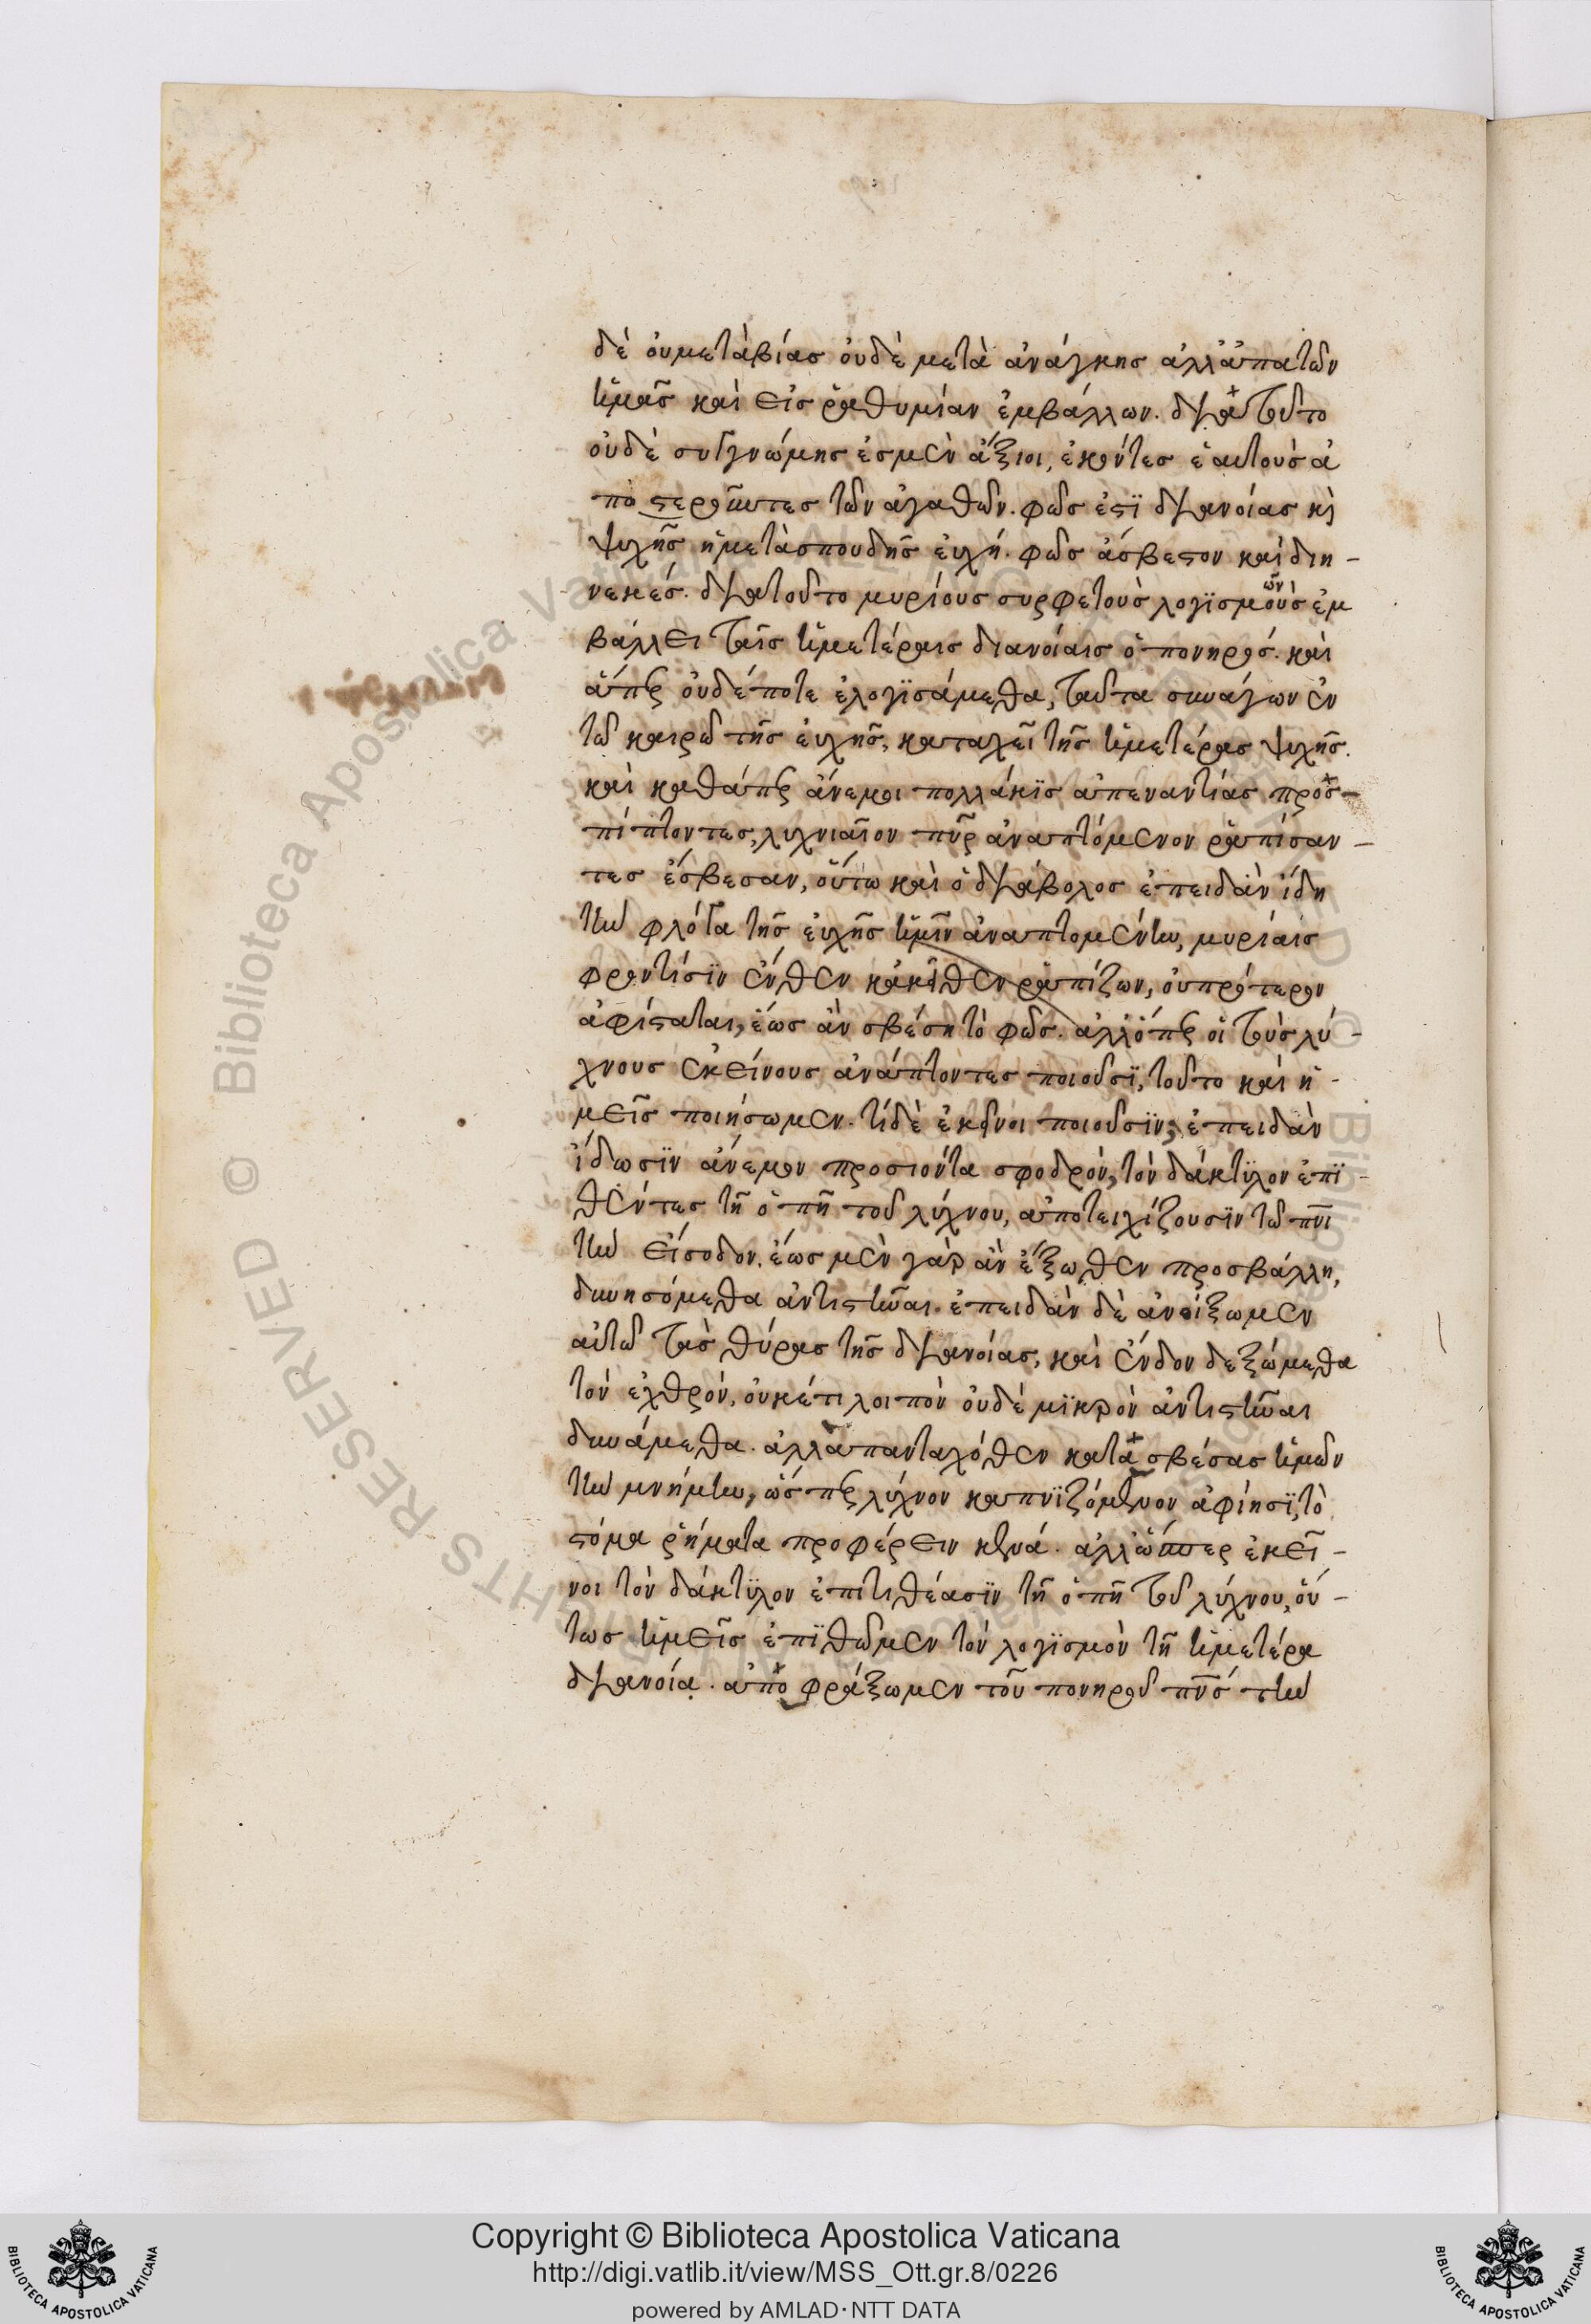 δὲ οὐ μετὰ βίας οὐδὲ μετὰ ἀνάγκης ἀλλ' ἀπατῶν
ἡμᾶς καὶ εἰς ῥαθυμίαν ἐμβάλλων. διὰ τοῦτο
οὐδὲ συγγνώμης ἐσμὲν ἄξιοι, ἑκόντες ἑαυτοὺς ἀ
ποστεροῦντες τῶν ἀγαθῶν. φῶς ἐστὶ διανοίας κὶ
ψυχῆς ἡ μετὰ σπουδῆς εὐχή. φῶς ἄσβεστον καὶ διη-
νεκές. διὰ τοῦτο μυρίους συρφετοὺς λογϊσμοὺς ἐμ
βάλλει ταῖς ἡμετέραις διανοίαις ὁ πονηρός. καὶ
ἅπερ οὐδέποτε ἐλογϊσάμεθα, ταῦτα συνάγων ἐν
τῶ καιρῶ τῆς εὐχῆς, καταχεῖ τῆς ἡμετέρας ψυχῆς.
καὶ καθάπερ ἄνεμοι πολλάκϊς ἀπεναντίας προσ-
πίπτοντες, λυχνιαῖον πῦρ ἀναπτόμενον ῥαπίσαν-
τες ἔσβεσαν, οὕτω καὶ ὁ διάβολος ἐπειδὰν ἴδη
τὴν φλόγα τῆς εὐχῆς ἡμῖν ἀναπτομένην, μυρίαις
φροντίσϊν ἔνθεν κἀκεῖθεν ῥαπίζων, οὐ πρότερον
ἀφίσταται, ἕως ἂν σβέση τὸ φῶς. ἀλλ' ὅπερ οἱ τοὺς λύ-
χνους ἐκείνους ἀνάπτοντες ποιοῦσϊ, τοῦτο καὶ ἡ-
μεῖς ποιήσωμεν. τί δὲ ἐκεῖνοι ποιοῦσϊν; ἐπειδὰν
ἴδωσϊν ἄνεμον προσιόντα σφοδρόν, τὸν δάκτϋλον ἐπϊ-
θέντες τῆ ὀπῆ τοῦ λύχνου, ἀποτειχίζουσϊν τῶ πνι
τὴν εἴσοδον. ἕως μὲν γὰρ ἂν ἔξωθεν προσβάλλη,
δυνησόμεθα ἀντιστῆναι. ἐπειδὰν δὲ ἀνοίξωμεν
αὐτῶ τὰς θύρας τῆς διανοίας, καὶ ἔνδον δεξώμεθα
τὸν ἐχθρόν, οὐκέτι λοιπὸν οὐδὲ μϊκρὸν ἀντιστῆναι
δυνάμεθα. ἀλλὰ πανταχόθεν κατασβέσας ἡμῶν
τὴν μνήμην, ὥσπερ λύχνον καπνϊζόμενον ἀφίησϊ, τὸ
στόμα ῥήματα προφέρειν κενά. ἀλλ' ὥσπερ ἐκεῖ-
νοι τὸν δάκτϋλον ἐπιτιθέασϊν τῆ ὀπῆ τοῦ λύχνου, οὕ-
τως ἡμεῖς ἐπϊθῶμεν τὸν λογϊσμὸν τῆ ἡμετέρα
διανοία. ἀποφράξωμεν τοῦ πονηροῦ πνς τὴν
Copyright © Biblioteca Apostolica Vaticana
http://digi.vatlib.it/view/MSS_Ott.gr.8/0226
powered by AMLAD·NTT DATA
BIBLIOTECA APOSTOLICA VATICANA
BIBLIOTECA APOSTOLICA VATICANA